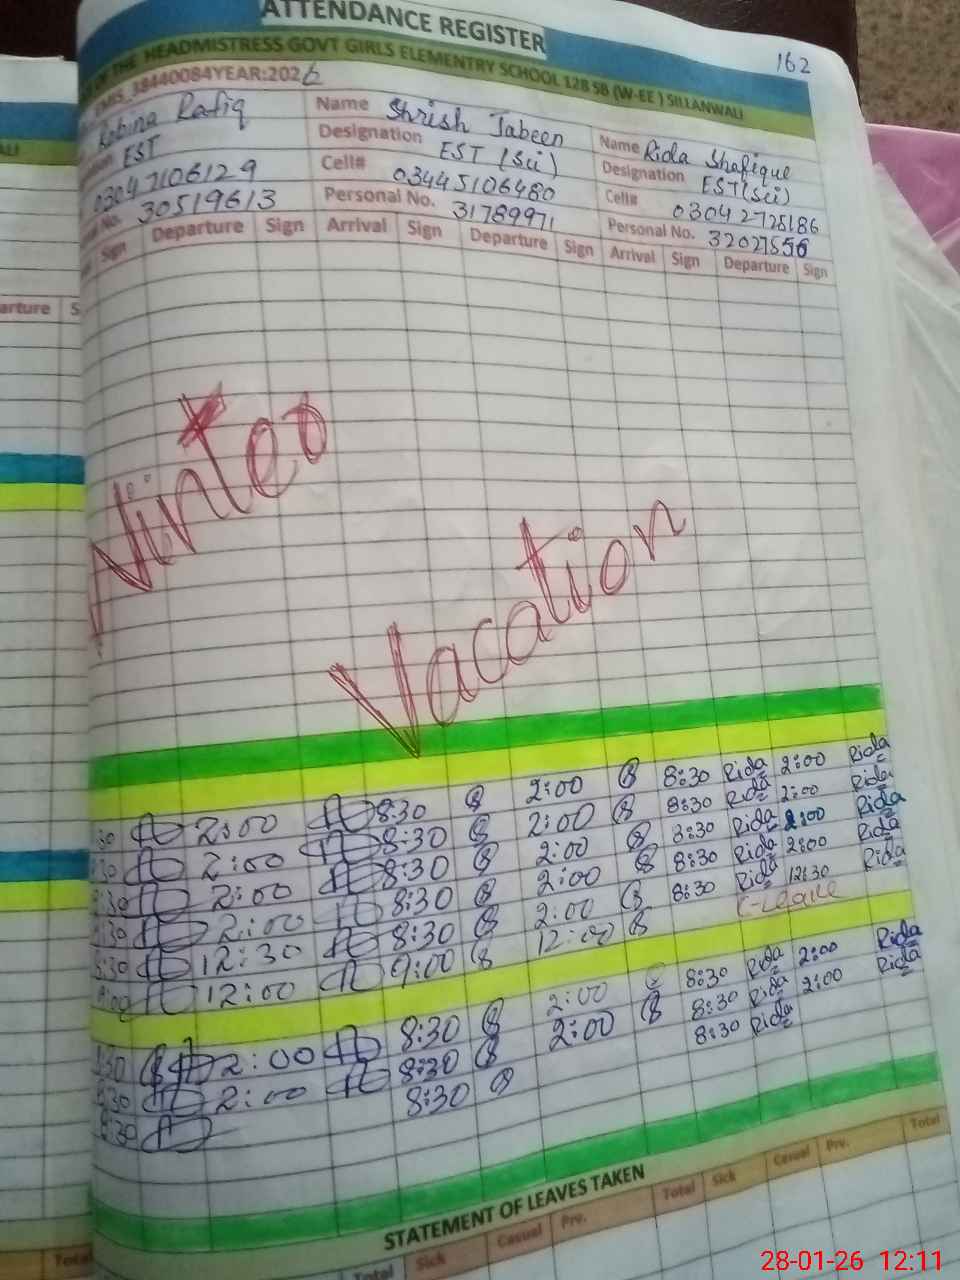 ATTENDANCE REGISTER
162
OF THE HEADMISTRESS GOVT GIRLS ELEMENTRY SCHOOL 128 SB (W-EE ) SILLANWALI
EMIS_38440084YEAR:2026
Robina Rafiq Name Shrish Jabeen Name Rida Shafique
EST Designation EST (Sci) Designation EST(Sci)
03047106129 Cell# 03445106480 Cell# 03042725186
30519613 Personal No. 31789971 Personal No. 32027556
Sign Departure Sign Arrival Sign Departure Sign Arrival Sign Departure Sign
arture
Winter
Vacation
:30 2:00 8:30 2:00 8:30 Rida 2:00 Rida
:30 2:00 8:30 2:00 8:30 Rida 2:00 Rida
:30 2:00 8:30 2:00 8:30 Rida 2:00 Rida
:30 2:00 8:30 2:00 8:30 Rida 2:00 Rida
8:30 12:30 8:30 2:00 8:30 Rida 12:30 Rida
9:00 12:00 9:00 12:00 C-Leave
8:30 2:00 8:30 2:00 8:30 Rida 2:00 Rida
8:30 2:00 8:30 2:00 8:30 Rida 2:00 Rida
8:30 8:30 8:30 Rida
STATEMENT OF LEAVES TAKEN
Total Total Sick Casual Prv. Total Sick Casual Prv. Total
28-01-26 12:11